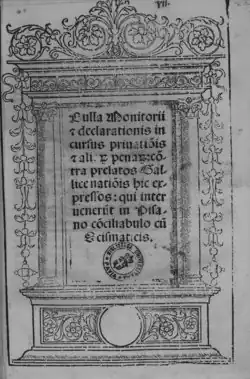 VII.
Bulla Monitorii
⁊ declarationis in
cursus priuatiõis
⁊ ali. penarũ: cõ
tra prelatos Gal
lice natiõis hic ex
pressos: qui inter
uenerũt in Pisa
no cõciliabulo cũ
Scismaticis.